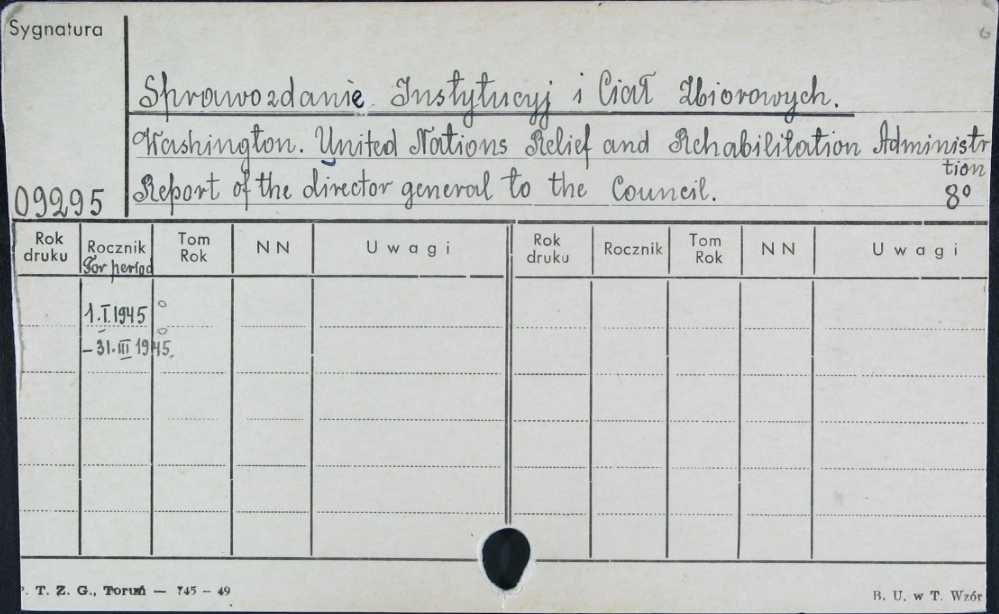 Sygnatura
6
Sprawozdanie Instytucyj i Ciał Zbiorowych.
Washington. United Nations Relief and Rehabilitation Administr
tion
Report of the director general to the Council.
8°
09295
Rok druku Rocznik Tom Rok NN Uwagi Rok druku Rocznik Tom Rok NN Uwagi
For period
1.I.1945
– 31.III 1945.
. T. Z. G., Toruń — 745 – 49
B. U. w T. Wzór